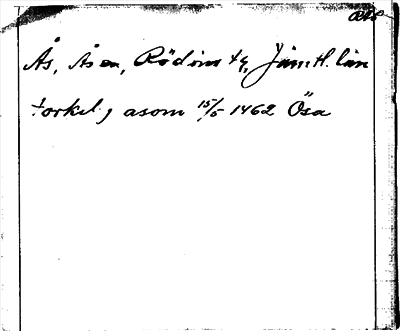 Ås, Åsen, Rödöns tg, Jämtl. län
torkel j asom 15/5 1462 Ösa